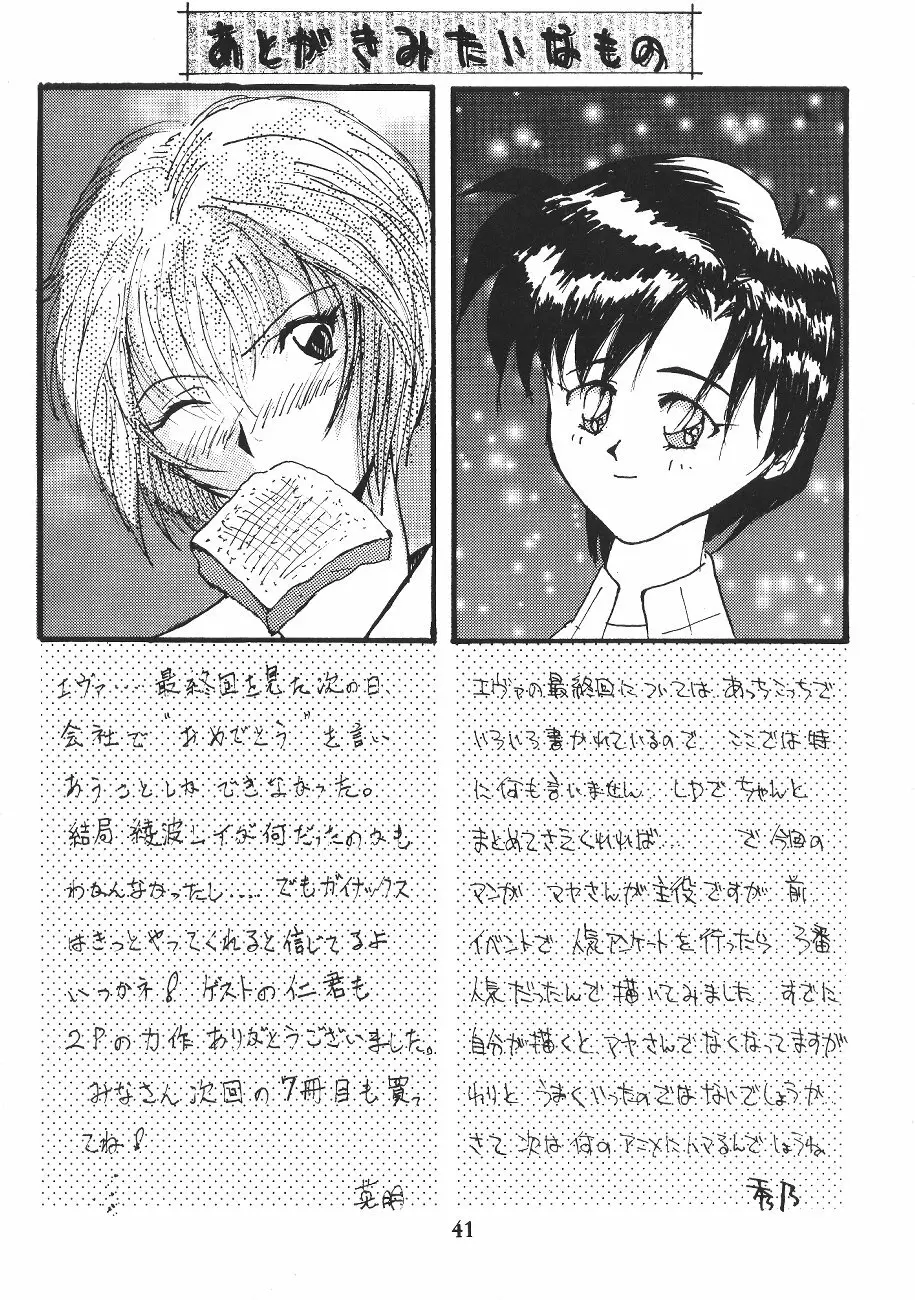 あとがきみたいなもの
エヴァ….最終回を見た次の日、
会社で"おめでとう"を言い
あうことしかできなかった。
結局 綾波レイが何だったのかも
わかんなかったし….でもガイナックス
はきっとやってくれると信じてるよ
いつかネ! ゲストの仁君も
2Pの力作ありがとうございました。
みなさん次回の7冊目も買っ
てね!
英明
エヴァの最終回については あっちこっちで
いろいろ書かれているので ここでは特
に何も言いません LDで ちゃんと
まとめてさえくれれば… で 今回の
マンガ マヤさんが主役ですが 前
イベントで 人気アンケートを行ったら 3番
人気だったんで 描いてみました すでに
自分が描くと マヤさんでなくなってますが
わりと うまくいったのではないでしょうか
さて 次は 何のアニメにハマるんでしょうね
41